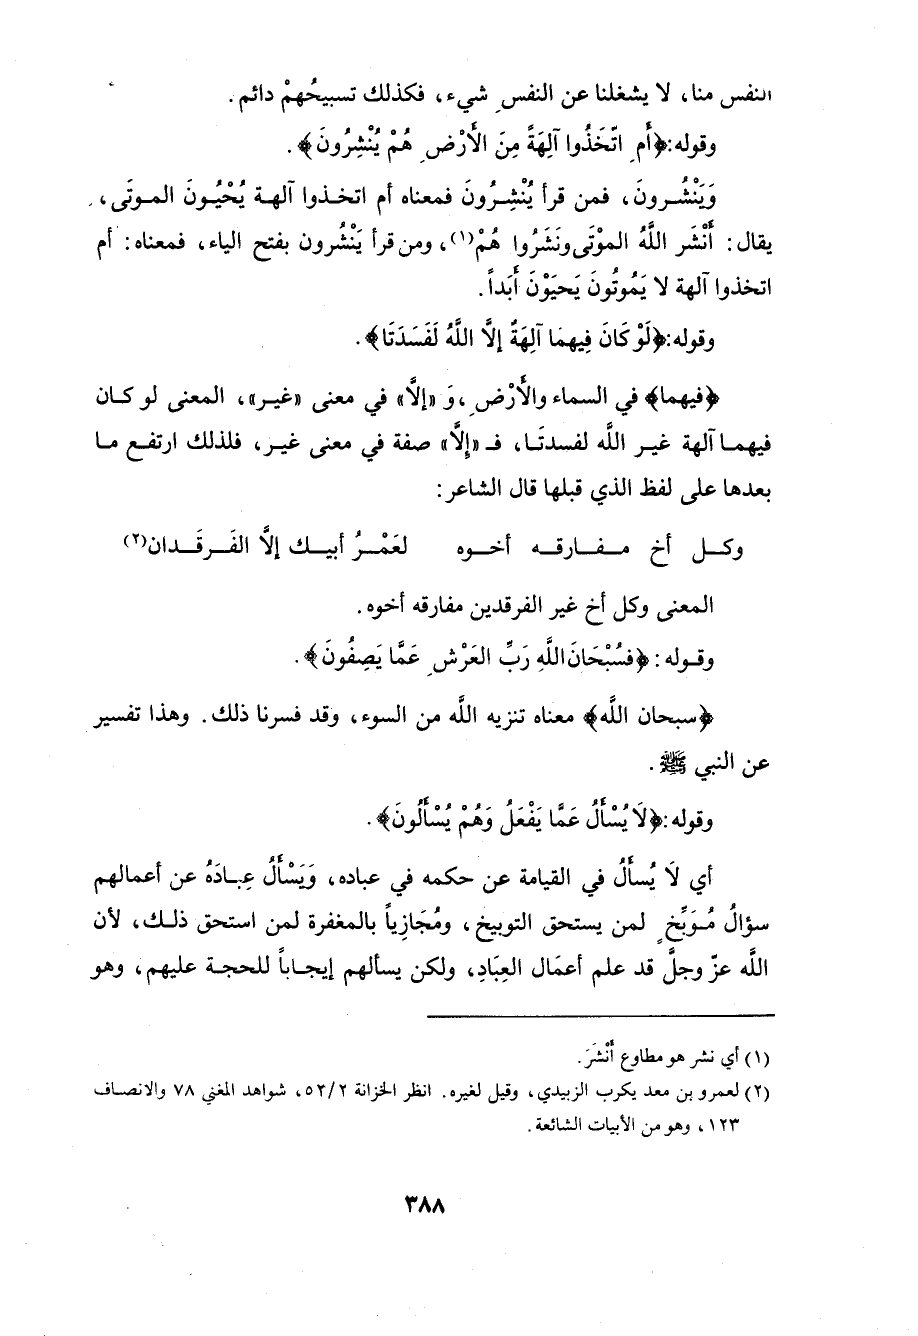 النفس منا، لا يشغلنا عن النفسِ شيء، فكذلك تسبيحُهمْ دائم.
وقوله:﴿أَمِ اتَّخَذُوا آلِهَةً مِنَ الْأَرْضِ هُمْ يُنْشِرُونَ﴾.
وَيَنْشُرونَ، فمن قرأ يُنْشِرُونَ فمعناه أم اتخذوا آلهة يُحْيُونَ الموتَى،
يقال: أَنْشَر اللَّهُ الموْتَى ونَشَرُوا هُمْ(١)، ومن قرأ يَنْشُرون بفتح الياء، فمعناه: أم
اتخذوا آلهة لا يَمُوتُونَ يَحيَوْنَ أَبَداً.
وقوله:﴿لَوْ كَانَ فِيهِمَا آلِهَةٌ إلَّا اللَّهُ لَفَسَدَتَا﴾.
﴿فيهما﴾ في السماء والأَرْضِ، وَ «إلَّا» في معنى «غير»، المعنى لو كان
فيهما آلهة غير اللَّه لفسدتَا، فـ «إِلَّا» صفة في معنى غير، فلذلك ارتفع ما
بعدها على لفظ الذي قبلها قال الشاعر:
وكل أخ مفارقه أخوه لعَمْرُ أبيك إلَّا الفَرقَدان(٢)
المعنى وكل أخ غير الفرقدين مفارقه أخوه.
وقوله: ﴿فسُبْحَانَ اللَّهِ رَبِّ العَرْشِ عَمَّا يَصِفُونَ﴾.
﴿سبحان اللَّه﴾ معناه تنزيه اللَّه من السوء، وقد فسرنا ذلك. وهذا تفسير
عن النبي ﷺ.
وقوله:﴿لَا يُسْأَلُ عَمَّا يَفْعَلُ وَهُمْ يُسْأَلُونَ﴾.
أي لَا يُسأَلُ في القيامة عن حكمه في عباده، وَيَسْأَلُ عِبادَهُ عن أعمالهم
سؤالُ مُوَبِّخٍ لمن يستحق التوبيخ، ومُجَازِياً بالمغفرة لمن استحق ذلك، لأن
اللَّه عزّ وجلَّ قد علم أعمَال العِبَادِ، ولكن يسألهم إيجاباً للحجة عليهم، وهو
(١) أي نشر هو مطاوع أَنْشَرَ.
(٢) لعمرو بن معد يكرب الزبيدي، وقيل لغيره. انظر الخزانة ٥٢/٢، شواهد المغني ٧٨ والانصاف
١٢٣، وهو من الأبيات الشائعة.
٣٨٨